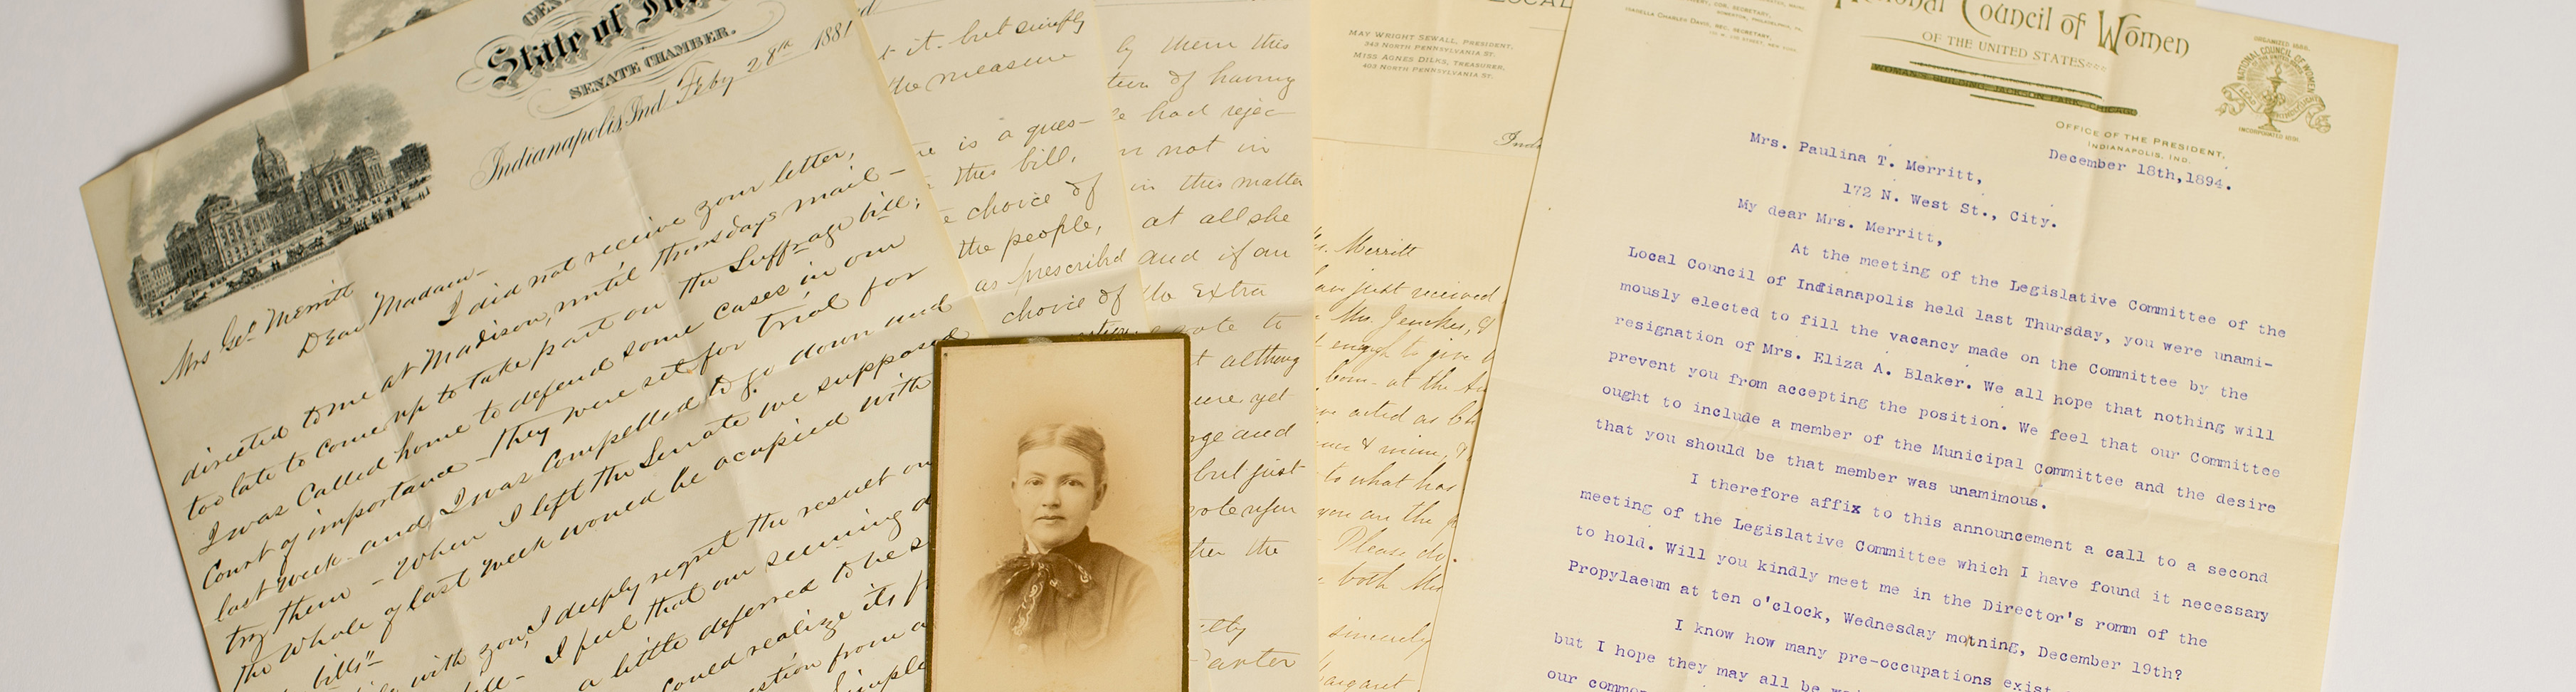 State of
SENATE CHAMBER.
Indianapolis, Ind Feby 28th 1881
Mrs Geo Merritt
Dear Madam-
I did not receive your letter,
directed to me at Madison, until Thursdays mail-
too late to come up to take part on the Suffrage bill;
I was Called home to defend some cases in our
Court of importance - they were set for trial for
last week - and, I was Compelled to go down and
try them - When I left the Senate we supposed
the whole of last week would be acupied with
bills"
with you, I deeply regret the result on
- I feel that our seeming d
a little deferred to be s
could realize its f
estion from a
t it. but simply
the measure
is a ques-
this bill,
choice of
the people,
as prescribed
choice of
by them this
of having
had rejec-
not in
in this matter
at all she
and if an
Extra
vote to
t althoug
were yet
and
but just
the
LOCAL
MAY WRIGHT SEWALL, PRESIDENT,
343 NORTH PENNSYLVANIA ST.
MISS AGNES DILKS, TREASURER,
403 NORTH PENNSYLVANIA ST.
Ind
Merritt
just received
Mrs. Jenckes, &
enough to give
at the
acted as
& mine,
to what has
you are the
Please do.
both
sincerely
ISABELLA CHARLES DAVIS, REC. SECRETARY,
National Council of Women
OF THE UNITED STATES
ORGANIZED 1888.
NATIONAL COUNCIL OF WOMEN
INCORPORATED 1891.
OFFICE OF THE PRESIDENT,
INDIANAPOLIS, IND.
December 18th,1894.
Mrs. Paulina T. Merritt,
172 N. West St., City.
My dear Mrs. Merritt,
At the meeting of the Legislative Committee of the
Local Council of Indianapolis held last Thursday, you were unami-
mously elected to fill the vacancy made on the Committee by the
resignation of Mrs. Eliza A. Blaker. We all hope that nothing will
prevent you from accepting the position. We feel that our Committee
ought to include a member of the Municipal Committee and the desire
that you should be that member was unamimous.
I therefore affix to this announcement a call to a second
meeting of the Legislative Committee which I have found it necessary
to hold. Will you kindly meet me in the Director's romm of the
Propylaeum at ten o'clock, Wednesday motning, December 19th?
I know how many pre-occupations exist
but I hope they may all be
our